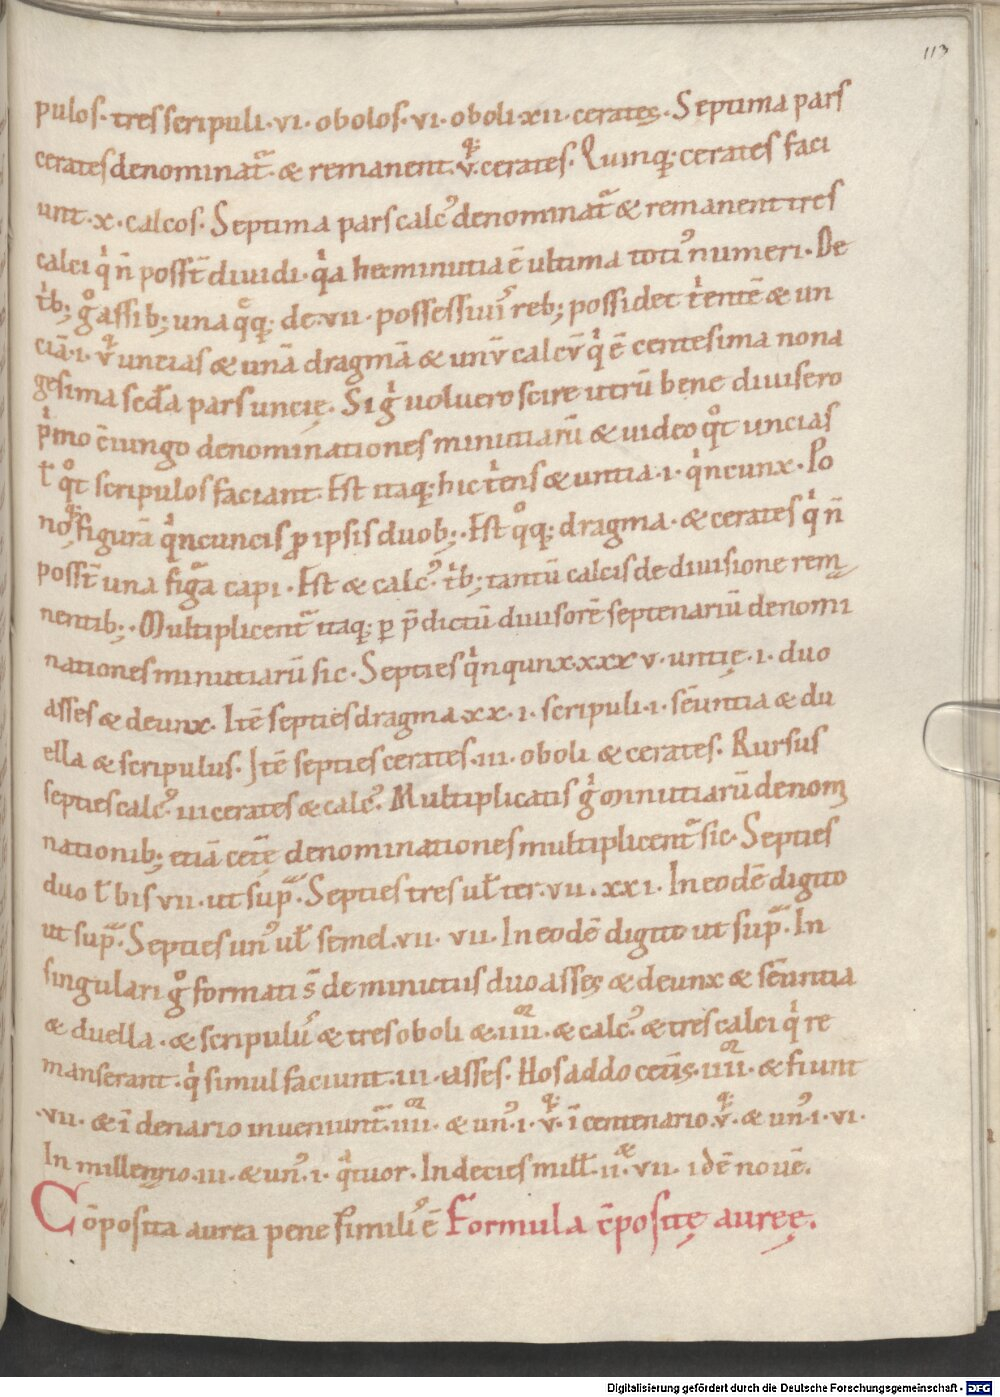 113
pulos· tres scripuli·vi·obolos·vi·oboli·xii·cerates·Septima pars
cerates denominat᷑·& remanent·v·cerates·Quinq; cerates faci
unt·x·calcos·Septima pars calc᷒ denominat᷑ & remanent tres
calci q̍ n̄ poss̄t diuidi·q̍a hec minutia ē ultima toti᷒ numeri·De
t̍b; g̊ assib; una q̊q; de·vii·possessiui᷒ reb; possidet t̍entē & un
ciā·i·v uncias & unā dragmā & unū calcū q̍ ē centesima nona
gesima sec̄da pars uncię·Si g̍ uoluero scire utrū bene diuisero
p̍mo c̄iungo denominationes minutiarū & uideo q̊t uncias
ł q̊t scripulos faciant·Est itaq; hic t̍ens & untia·i·q̍ncunx·Po
no figurā q̍ncuncis ꝓ ipsis duob;·Est q̊q; dragma·& cerates q̍ n̄
poss̄t una figᷓa capi·Est & calc᷒ t̍b; tantū calcis de diuisione rem
nentib;·Multiplicent᷑ itaq; ꝑ p̄dictū diuisorē septenariū denomi
nationes minutiarū sic·Septies q̍nqunx·xxxv·untię·i·duo
asses & deunx·Itē septies dragma·xx·i·scripuli·i·sēuntia & du
ella & scripulus·Itē septies cerates·iii·oboli & cerates·Rursus
septies calc᷒ iii cerates & calc᷒·Multiplicatis g̍ minutiarū denom
nationib; etiā cetę denominationes multiplicent᷑ sic·Septies
duo ł bis vii·ut supᷓ·Septies tres uł ter·vii·xxi·In eodē digito
ut supᷓ·Septies un᷒ uł semel·vii·vii·In eodē digito ut supᷓ·In
singulari g̊ formati s̄ de minutiis duo asses & deunx & sēuntia
& duella·& scripul᷒ & tres oboli & iiii·& calc᷒·& tres calci q̍ re
manserant·q̍ simul faciunt·iii·asses·Hos addo cet̄is·iiii·& fiunt
·vii·& ī denario inueniunt᷑·iiii·& un᷒·i·v·ī centenario·v·& un᷒·i·vi·
In millenrio·iii·& un᷒·i·q̍tuor·In decies mill̄·ii·vii·idē nouē·
Cōposita aurea pene simili᷒ ē Formula c̄positę aureę·
Digitalisierung gefördert durch die Deutsche Forschungsgemeinschaft - DFG